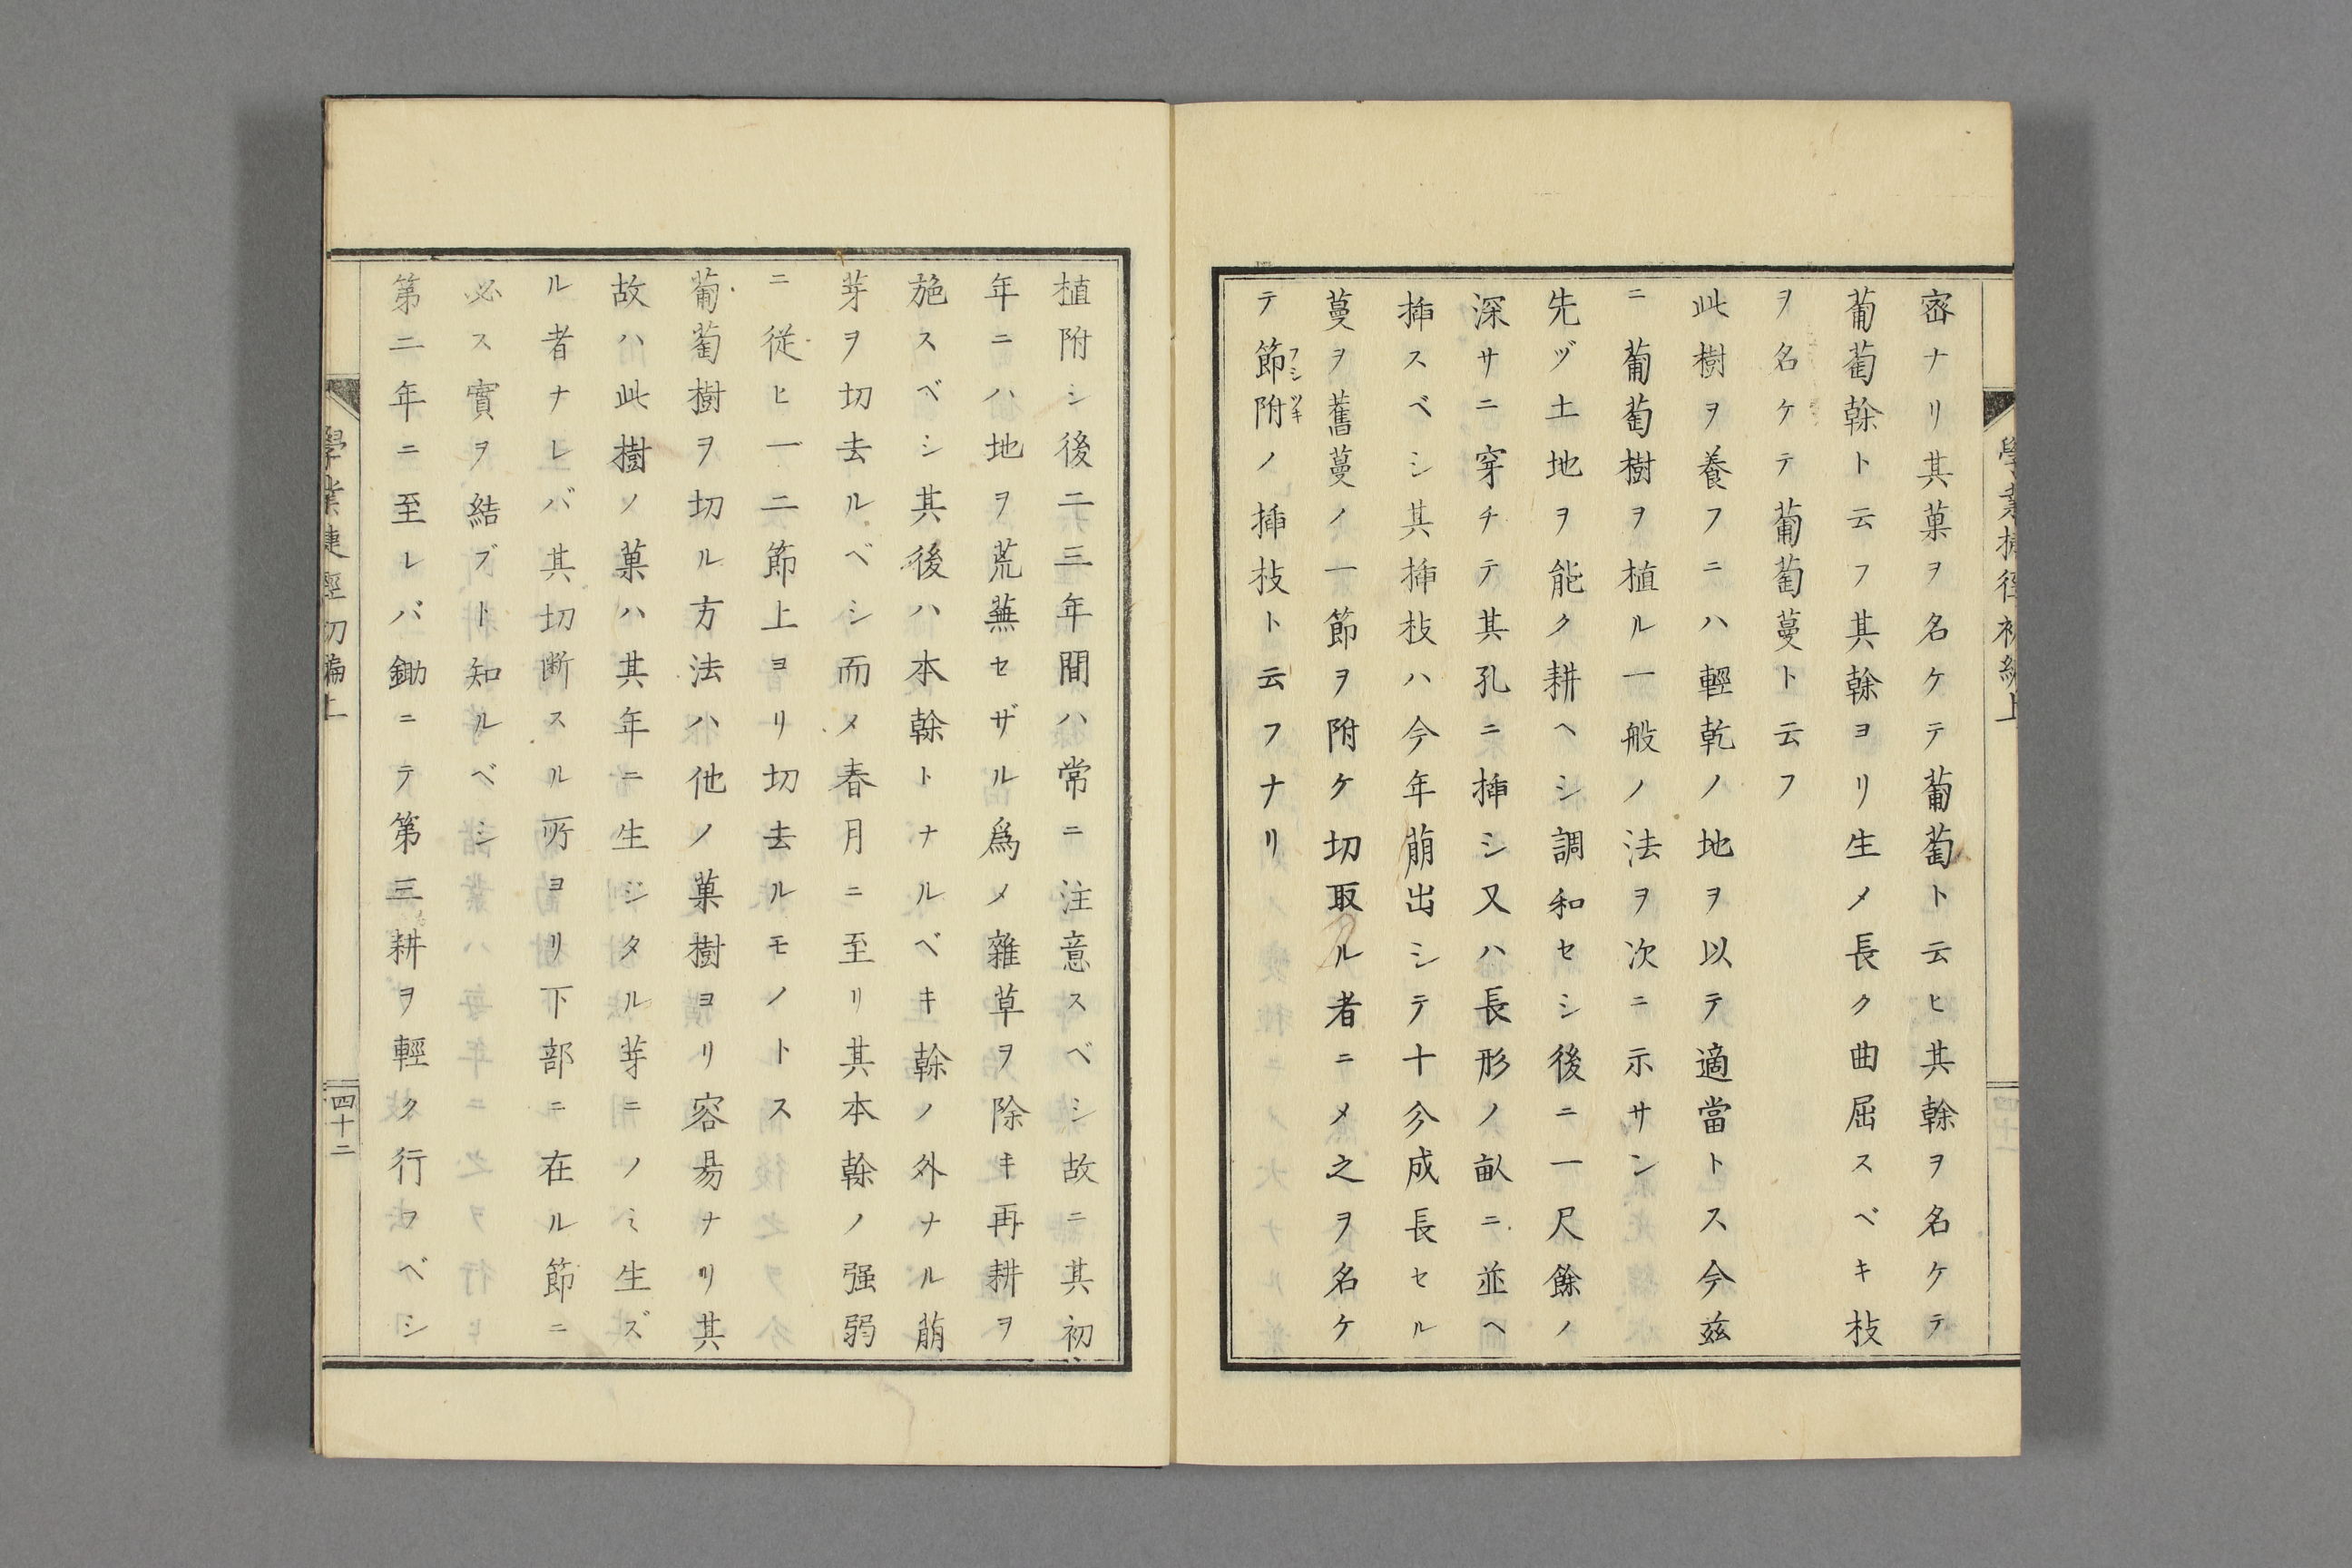 密ナリ其菓ヲ名ケテ葡萄ト云ヒ其榦ヲ名ケテ
葡萄榦ト云フ其榦ヨリ生メ長ク曲屈スベキ枝
ヲ名ケテ葡萄蔓ト云フ
此樹ヲ養フニハ輕乾ノ地ヲ以テ適當トス今玆
ニ葡萄樹ヲ植ル一般ノ法ヲ次ニ示サン
先ヅ土地ヲ能ク耕ヘシ調和セシ後ニ一尺餘ノ
深サニ穿チテ其孔ニ挿シ又ハ長形ノ畝ニ並ヘ
挿スベシ其挿枝ハ今年萠出シテ十分成長セル
蔓ヲ舊蔓ノ一節ヲ附ケ切取ル者ニメ之ヲ名ケ
テ節附ノ挿枝ト云フナリ
フシツキ
植附シ後二三年間ハ常ニ注意スベシ故ニ其初
年ニハ地ヲ荒蕪セザル爲メ雜草ヲ除キ再耕ヲ
施スベシ其後ハ本榦トナルベキ榦ノ外ナル萠
芽ヲ切去ルベシ而メ春月ニ至リ其本榦ノ强弱
ニ從ヒ一二節上ヨリ切去ルモノトス
葡萄樹ヲ切ル方法ハ他ノ菓樹ヨリ容易ナリ其
故ハ此樹ノ菓ハ其年ニ生ジタル芽ニノミ生ズ
ル者ナレバ其切断スル所ヨリ下部ニ在ル節ニ
必ス實ヲ結ブト知ルベシ
第二年ニ至レバ鋤ニテ第三耕ヲ輕ク行フベシ
四十二